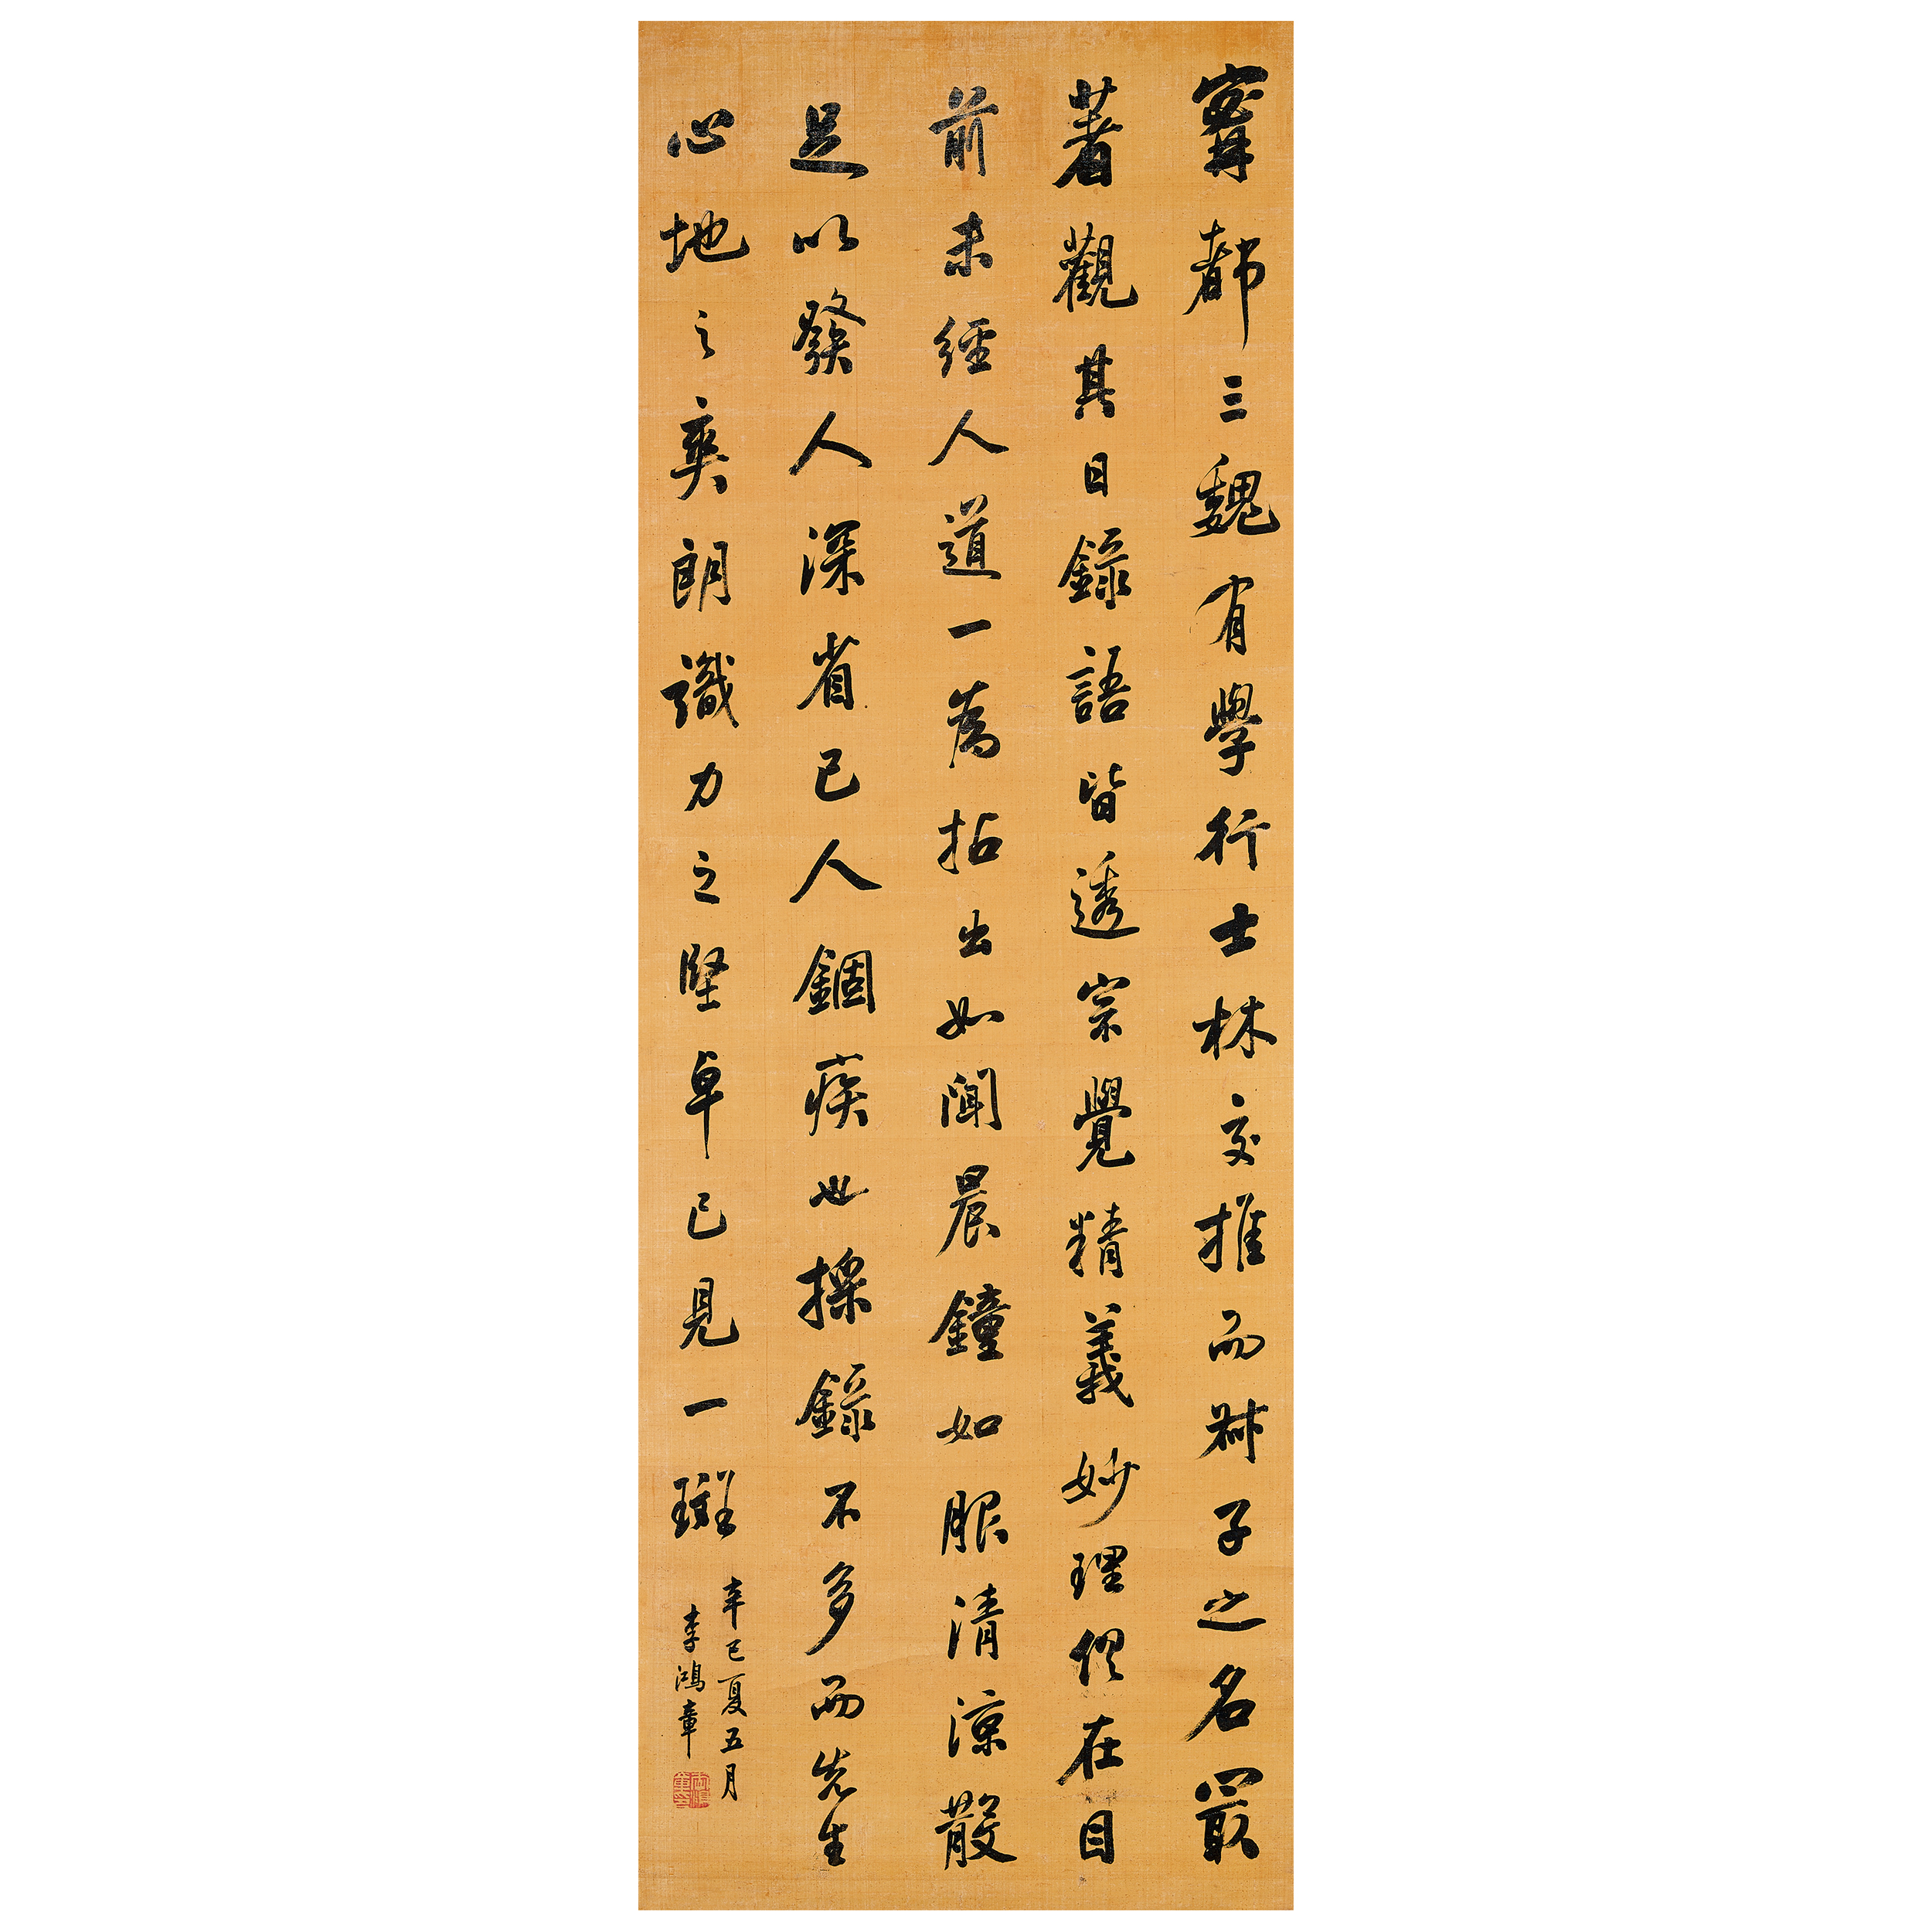 甯都三魏有學行士林交推而叔子之名冣
著觀其日錄語皆透宗覺精義妙理俱在目
前未經人道一為拈出如聞晨鐘如服清涼散
足以發人深省已人錮疾也採錄不多而先生
心地之爽朗識力之堅卓已見一斑
辛巳夏五月
李鴻章